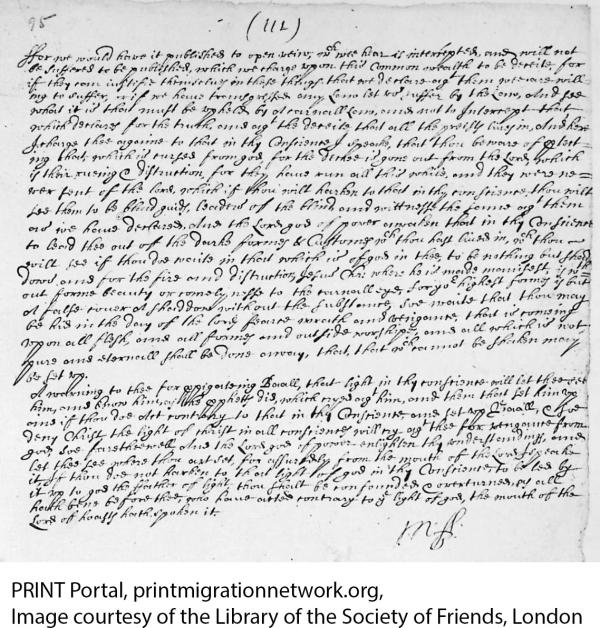 95
(111)
ffor we would have it published to open veiw, wch wee hear is intercepted, and will not
be suffered to be published, which we charge upon this Common wealth to be deceite, for
if they can iustifie themselves in these things that we declare agt them wee are will-
ing to suffer, & if we have transgressed any Law let us suffer by the Law, and see
what it is that must be upheld by a carnall Law, and not to Intercept that
which declares for the truth, and agt the deceite that all the preists live in, And here
I charge thee againe to that in thy Conscience I speake, that thou beware of
ing that which is cursed from god, for the decree is gone out from the Lord, which
is their distruction, for they have run all this while, and they were ne-
ver sent of the lord, which if thou will harken to that in thy conscience, thou wilt
see them to be blind guids, leaders of the blind, and wittnesse the same agt them
as we have declared, And the Lord god of power awaken that in thy Conscience
to lead thee out of the darke formes & Customes wch thou hast lived in, wch thou
will see if thou doe waite in that which is of god in thee, to be nothing but shad-
dows, and for the fire and distruction, Jesus where he is made manifest, is with
out forme beauty or comelynesse to the carnall eye, for yor highest forme is but
a false cover a shaddow without the substance, soe waite that thou may
be hid in the day of the lords fearce wrath and vengance, that is coming
upon all flesh, and all formes and outside worships, and all which is not
pure and eternall shall be done away, that, that wch cannot be shaken may
be set up.
A warning to thee for Baall, that light in thy conscience will let thee see
him, and know him, as the pphetts did, which cryed agt him, and them that set him up
and if thou doe Act contrary to that in thy Conscience, and set up Baall, & soe
deny Christ the light of christ in all consciences will cry agt thee for vengance from
god, soe farethewell, And the Lord god of power enlighten thy understanding, and
let thee see where thou art set, for assuredly from the mouth of the Lord I speake
it, If thou doe not harken to that light of god in thy Conscience to be led by
it up to god the father of light, thou shalt be confounded & overturned, as all
hath bene before thee, who have acted contrary to ye light of god, the mouth of the
Lord of hoasts hath spoken it
MF
PRINT Portal, printmigrationnetwork.org,
Image courtesy of the Library of the Society of Friends, London